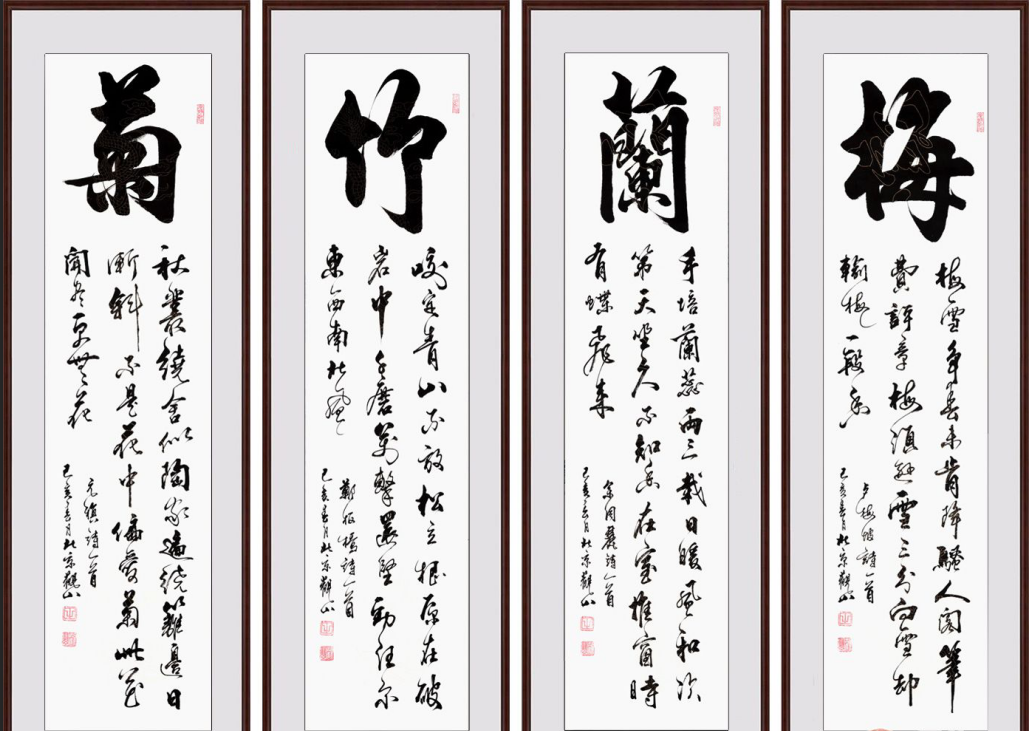 梅
梅雪争春未肯降騷人閣筆
費評章梅須遜雪三分白雪却
輸梅一段香
卢梅坡詩一首
己亥春月北京觀山
蘭
手培蘭蕊两三栽日暖風和次
第天坐久不知香在室推窗時
有蝶飛来
余同麓詩一首
己亥春月北京觀山
竹
咬定青山不放松立根原在破
岩中千磨萬擊還堅勁任尔
東西南北風
鄭板橋詩一首
己亥春月北京觀山
菊
秋叢繞舍似陶家遍繞籬邊日
漸斜不是花中偏愛菊此花
開盡更無花
元稹詩一首
己亥春月北京觀山